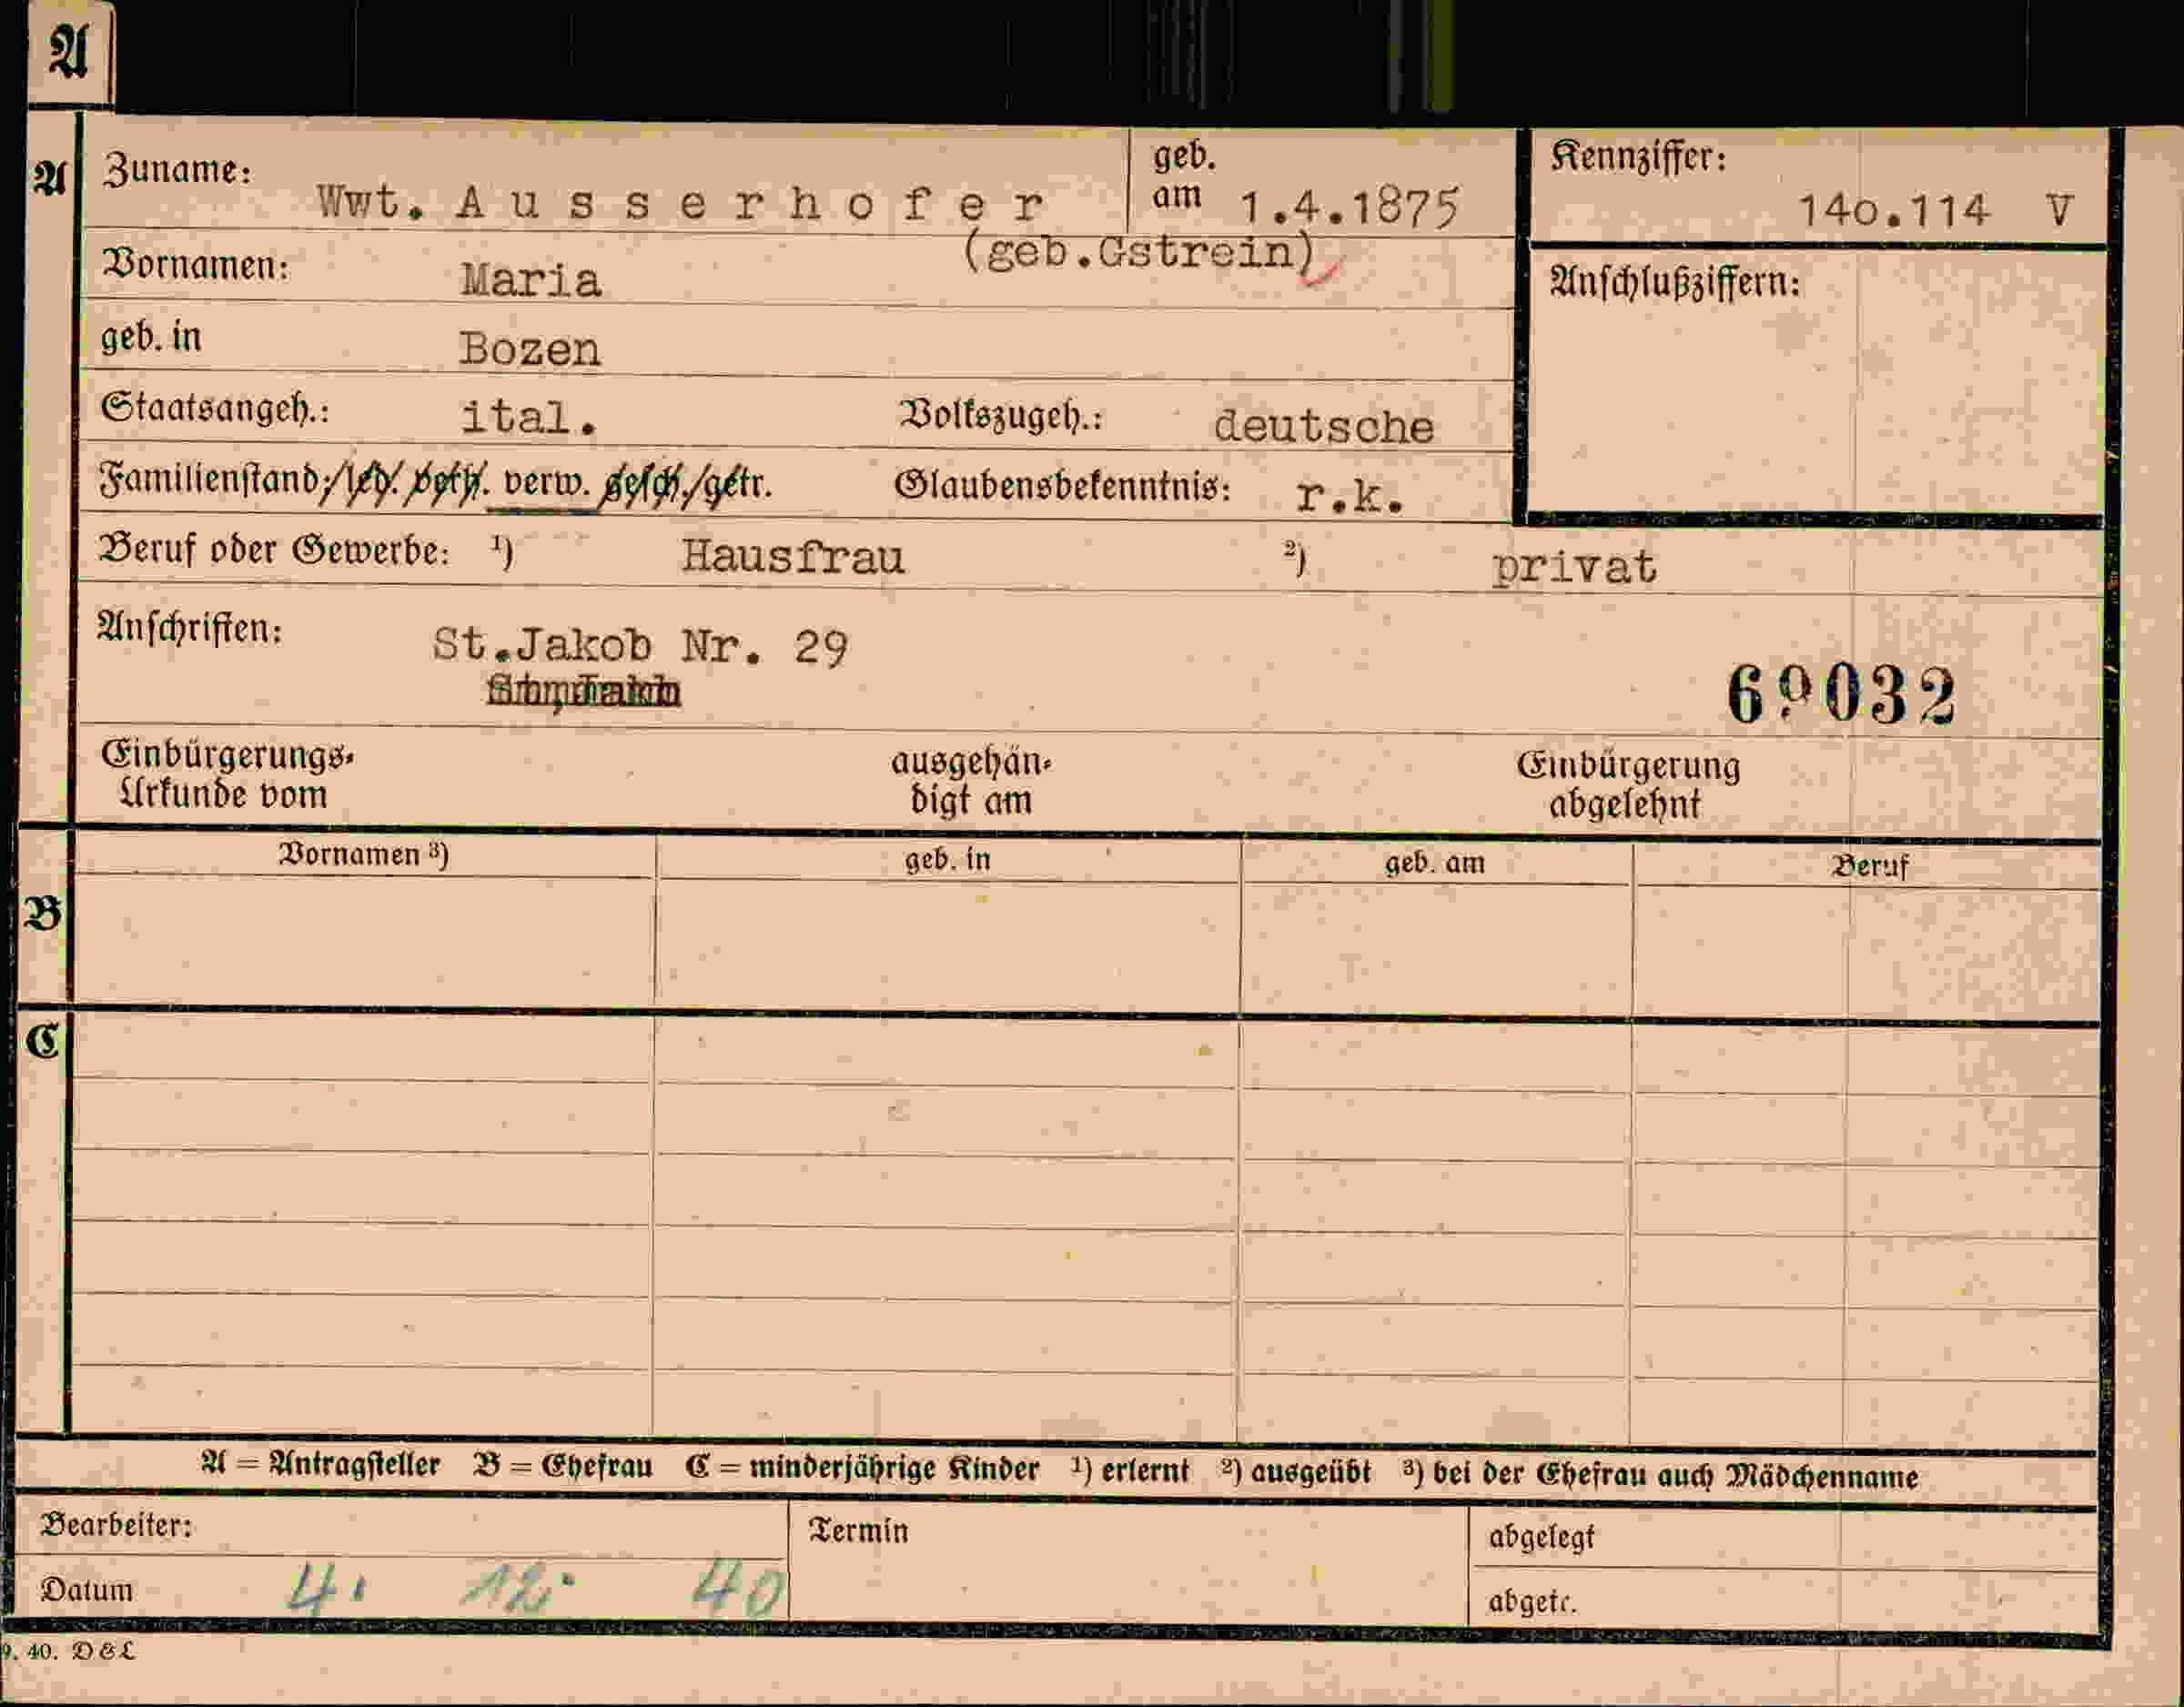 A
A
Zuname: Wwt. Ausserhofer
geb. am 1.4.1875
Kennziffer: 14o.114 V
(geb.Gstrein)
Vornamen: Maria
Anschlußziffern:
geb. in Bozen
Staatsangeh.: ital. Volkszugeh.: deutsche
Familienstand: led. verh. verw. gesch. getr. Glaubensbekenntnis: r.k.
Beruf oder Gewerbe: ¹) Hausfrau ²) privat
Anschriften: St.Jakob Nr. 29
69032
Einbürgerungs-
Urkunde vom
ausgehän-
digt am
Einbürgerung
abgelehnt
Vornamen ³) geb. in geb. am Beruf
B
C
A = Antragsteller B = Ehefrau C = minderjährige Kinder ¹) erlernt ²) ausgeübt ³) bei der Ehefrau auch Mädchenname
Bearbeiter: Termin abgelegt
Datum 4. 12. 40 abgetr.
9. 40. D & L